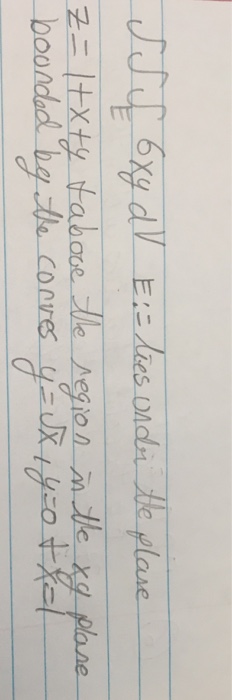 ∫∫∫_E 6xy dV E:= lies under the plane
z = 1+x+y + above the region in the xy plane
bounded by the curves y=√x, y=0 + x=1